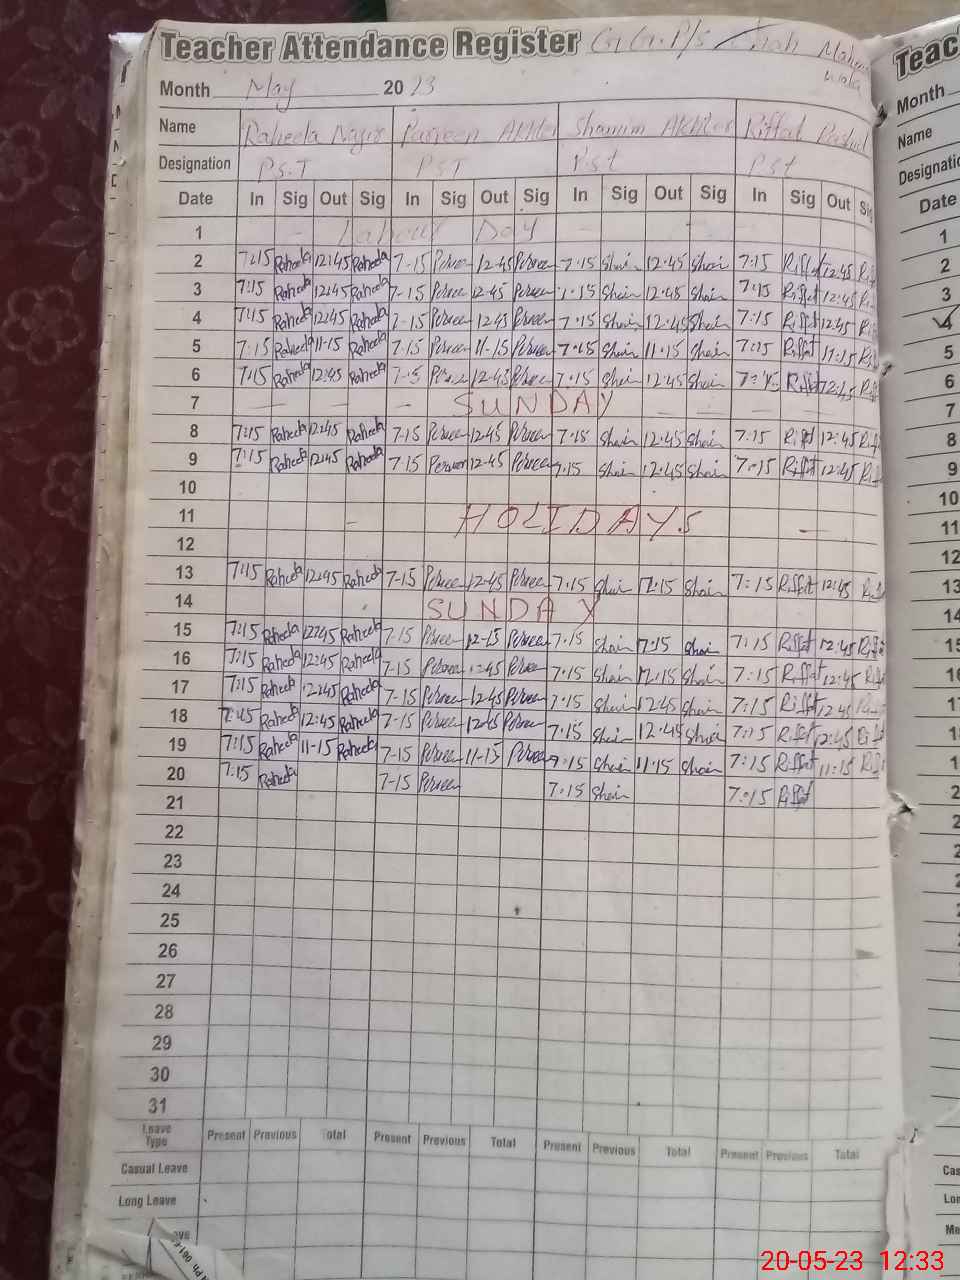 Teacher Attendance Register G.G.P/s Shah Mahem
wala
Month May 2023
Name Raheela Parveen Akhter Shamim Akhter Riffat Rashid
Designation P.S.T PST P.st Pst
Date In Sig Out Sig In Sig Out Sig In Sig Out Sig In Sig Out Sig
1 Labour Day
2 7:15 Raheela 12:45 Raheela 7-15 Perveen 12-45 Perveen 7·15 Sham 12·45 Sham 7:15 Riffat 12:45
3 7:15 Raheela 12:45 Raheela 7-15 Perveen 12-45 Perveen 7·15 Sham 12·45 Sham 7:15 Riffat 12:45
4 7:15 Raheela 12:45 Raheela 7-15 Perveen 12-45 Perveen 7·15 Sham 12·45 Sham 7:15 Riffat 12:45
5 7:15 Raheela 11-15 Raheela 7-15 Perveen 11-15 Perveen 7·15 Sham 11·15 Sham 7:15 Riffat 11:15
6 7:15 Raheela 12:45 Raheela 7-15 Perveen 12-45 Perveen 7·15 Sham 12·45 Sham Riffat 12:45
7 SUNDAY
8 7:15 Raheela 12:45 Raheela 7-15 Perveen 12-45 Perveen 7·15 Sham 12·45 Sham 7:15 Riffat 12:45
9 7:15 Raheela 12:45 Raheela 7-15 Perveen 12-45 Perveen 7·15 Sham 12·45 Sham 7:15 Riffat 12:45
10
11 HOLIDAYS
12
13 7:15 Raheela 12:45 Raheela 7-15 Perveen 12-45 Perveen 7·15 Sham 12·15 Sham 7:15 Riffat 12:45
14 SUNDAY
15 7:15 Raheela 12:45 Raheela 7-15 Perveen 12-15 Perveen 7·15 Sham 12·15 Sham 7:15 Riffat 12:45
16 7:15 Raheela 12:45 Raheela 7-15 Perveen 12-45 Perveen 7·15 Sham 12·15 Sham 7:15 Riffat 12:45
17 7:15 Raheela 12:45 Raheela 7-15 Perveen 12-45 Perveen 7·15 Sham 12·45 Sham 7:15 Riffat 12:45
18 7:45 Raheela 12:45 Raheela 7-15 Perveen 12-45 Perveen 7·15 Sham 12·45 Sham 7:15 Riffat 12:45
19 7:15 Raheela 11-15 Raheela 7-15 Perveen 11-15 Perveen 7·15 Sham 11·15 Sham 7:15 Riffat 11:15
20 7:15 Raheela 7-15 Perveen 7·15 Sham 7:15 Riffat
21
22
23
24
25
26
27
28
29
30
31
Leave Type Present Previous Total Present Previous Total Present Previous Total Present Previous Total
Casual Leave
Long Leave
Month
Name
Date
1
2
3
4
5
6
7
8
9
10
11
12
13
14
20-05-23 12:33